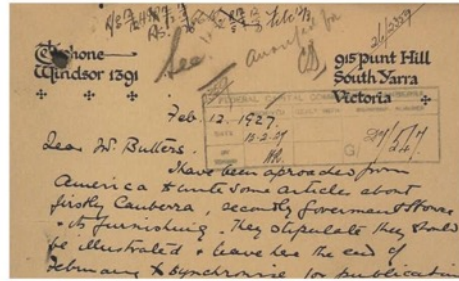 See
Telephone
Windsor 1391
915 Punt Hill
South Yarra
Victoria
Feb. 12. 1927.
FEDERAL CAPITAL COMM
DATE 15-2-27
G/
Dear Mr Butters.
I have been aproached from
America to write some articles about
firstly Canberra, secondly Goverment House
+ its furnishing. They stipulate they should
be illustrated + leave here the end of
February to synchronise for publication